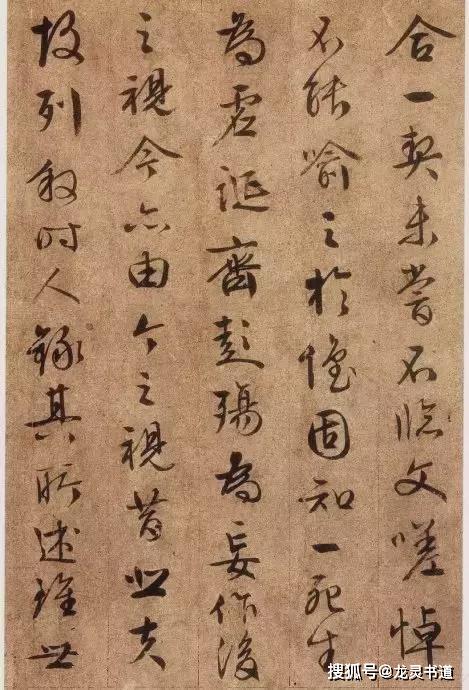 合一契未嘗不臨文嗟悼
不能喻之於懷固知一死生
為虛誕齊彭殤為妄作後
之視今亦由今之視昔悲夫
故列敘時人錄其所述雖世
搜狐号@龙灵书道